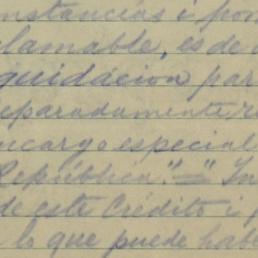 nstancias i por
clamable, es de
quidacion par
eparadamente r
ncargo especial
República." = "In
de este Crédito i
lo que puede hab